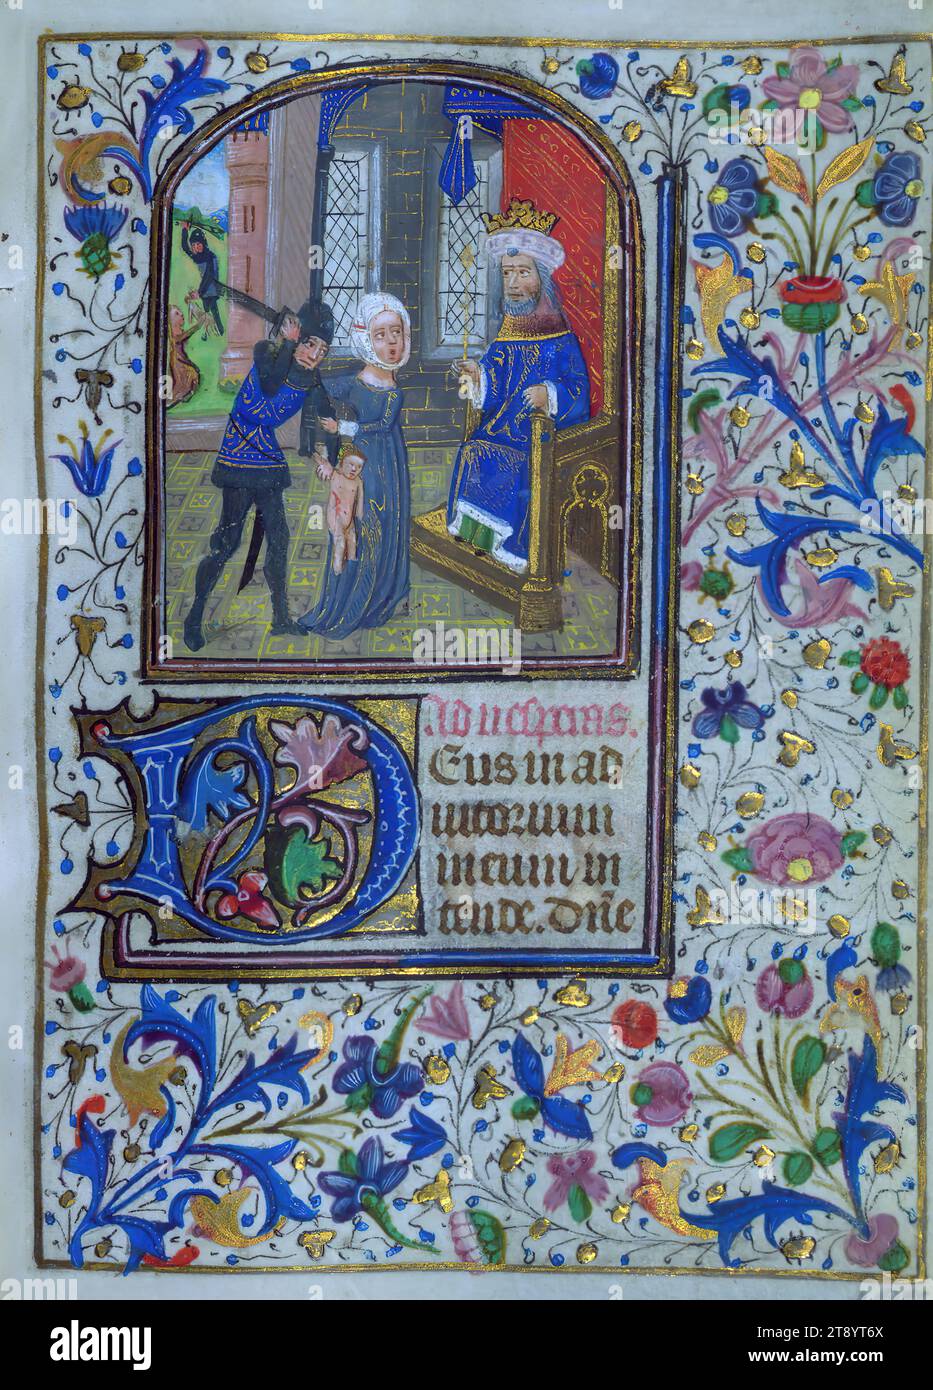 Ad uesperas.
Deus in ad
iutorium
meum in
tende. Dn̄e
alamy
Image ID: 2T8YT6X
www.alamy.com